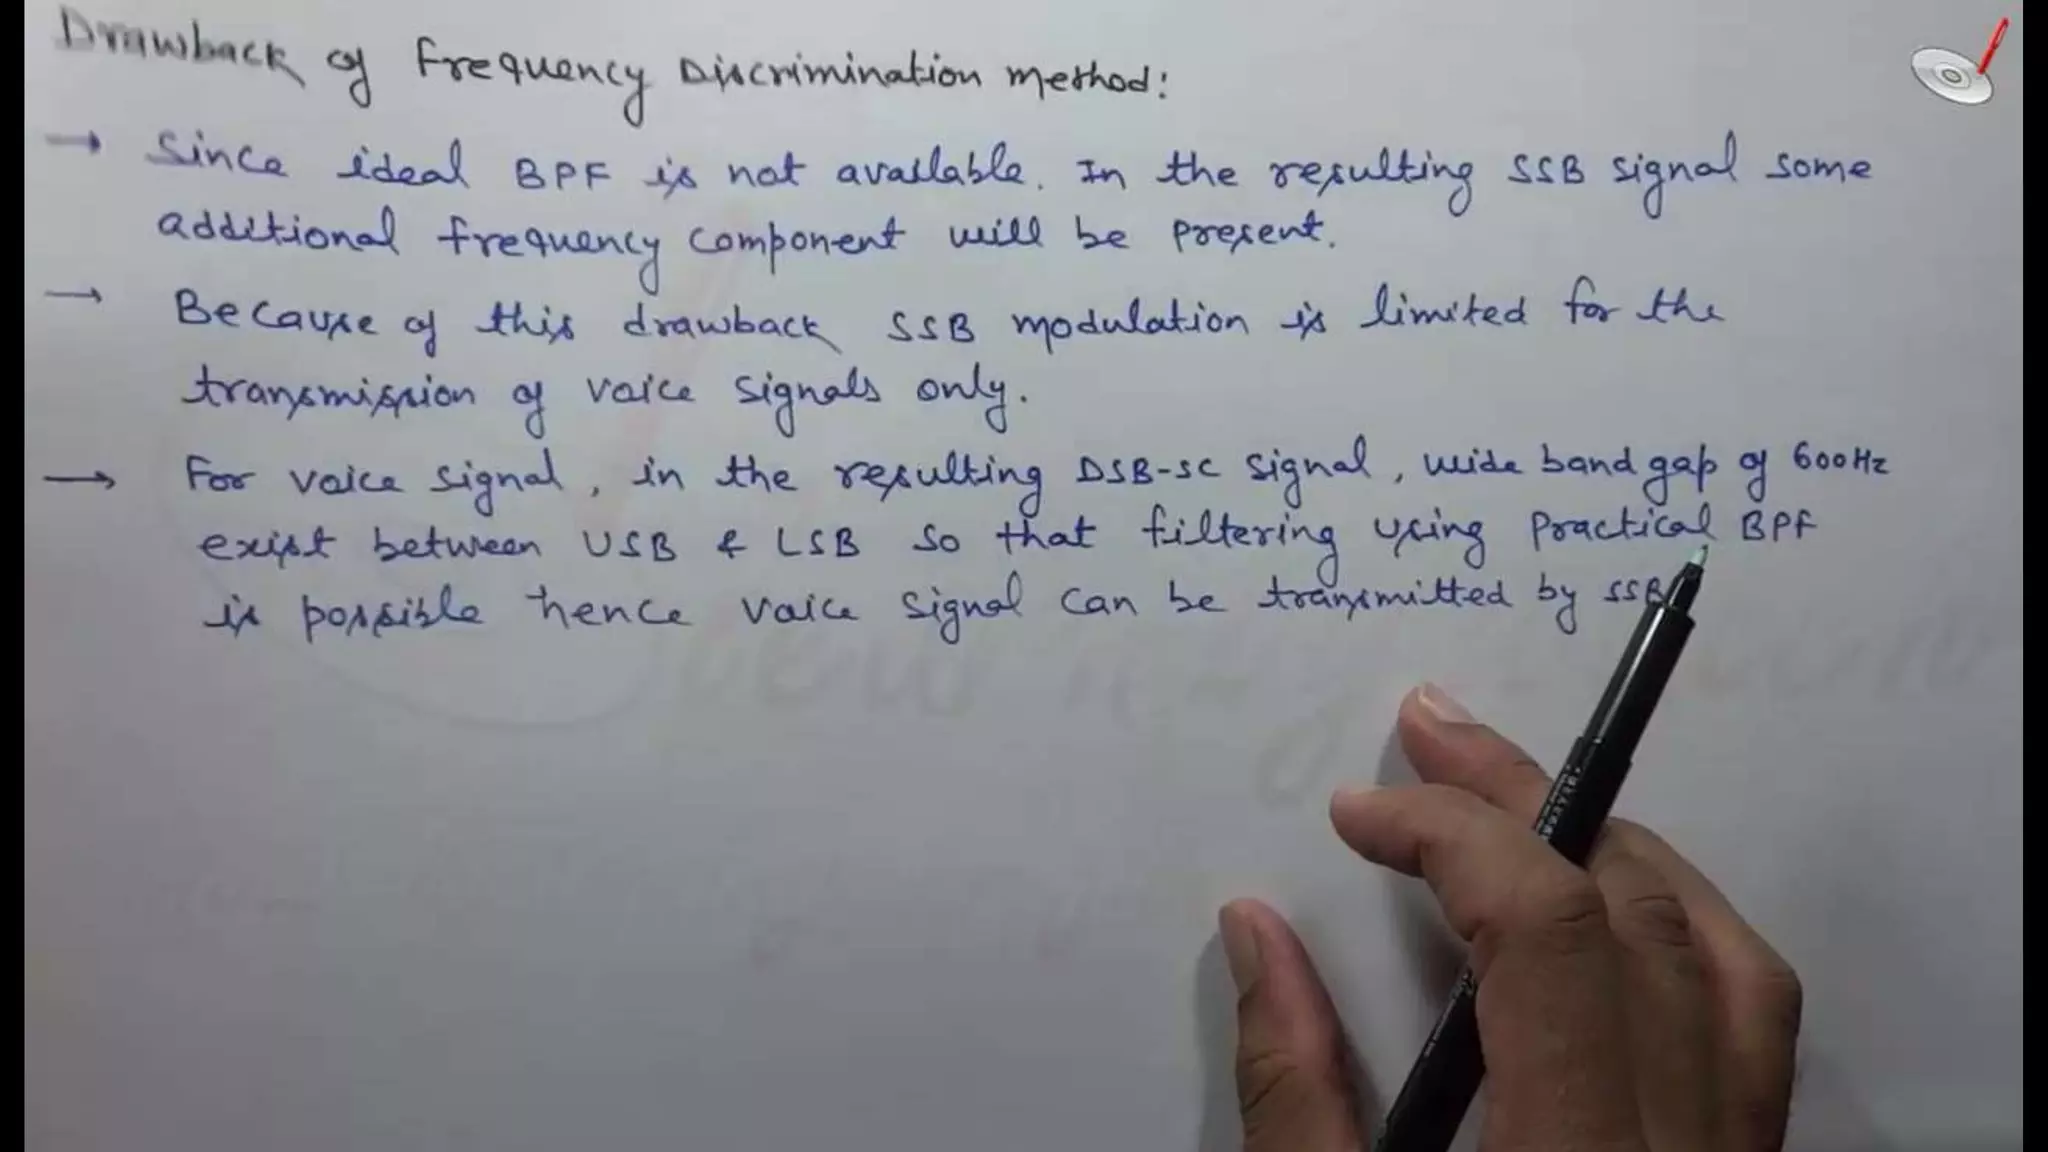 Drawback of Frequency Discrimination method:
→ Since ideal BPF is not available. In the resulting SSB signal some
additional frequency component will be present.
→ Because of this drawback SSB modulation is limited for the
transmission of voice signals only.
→ For voice signal, in the resulting DSB-SC signal, wide band gap of 600Hz
exist between USB & LSB so that filtering using practical BPF
is possible hence voice signal can be transmitted by SSB